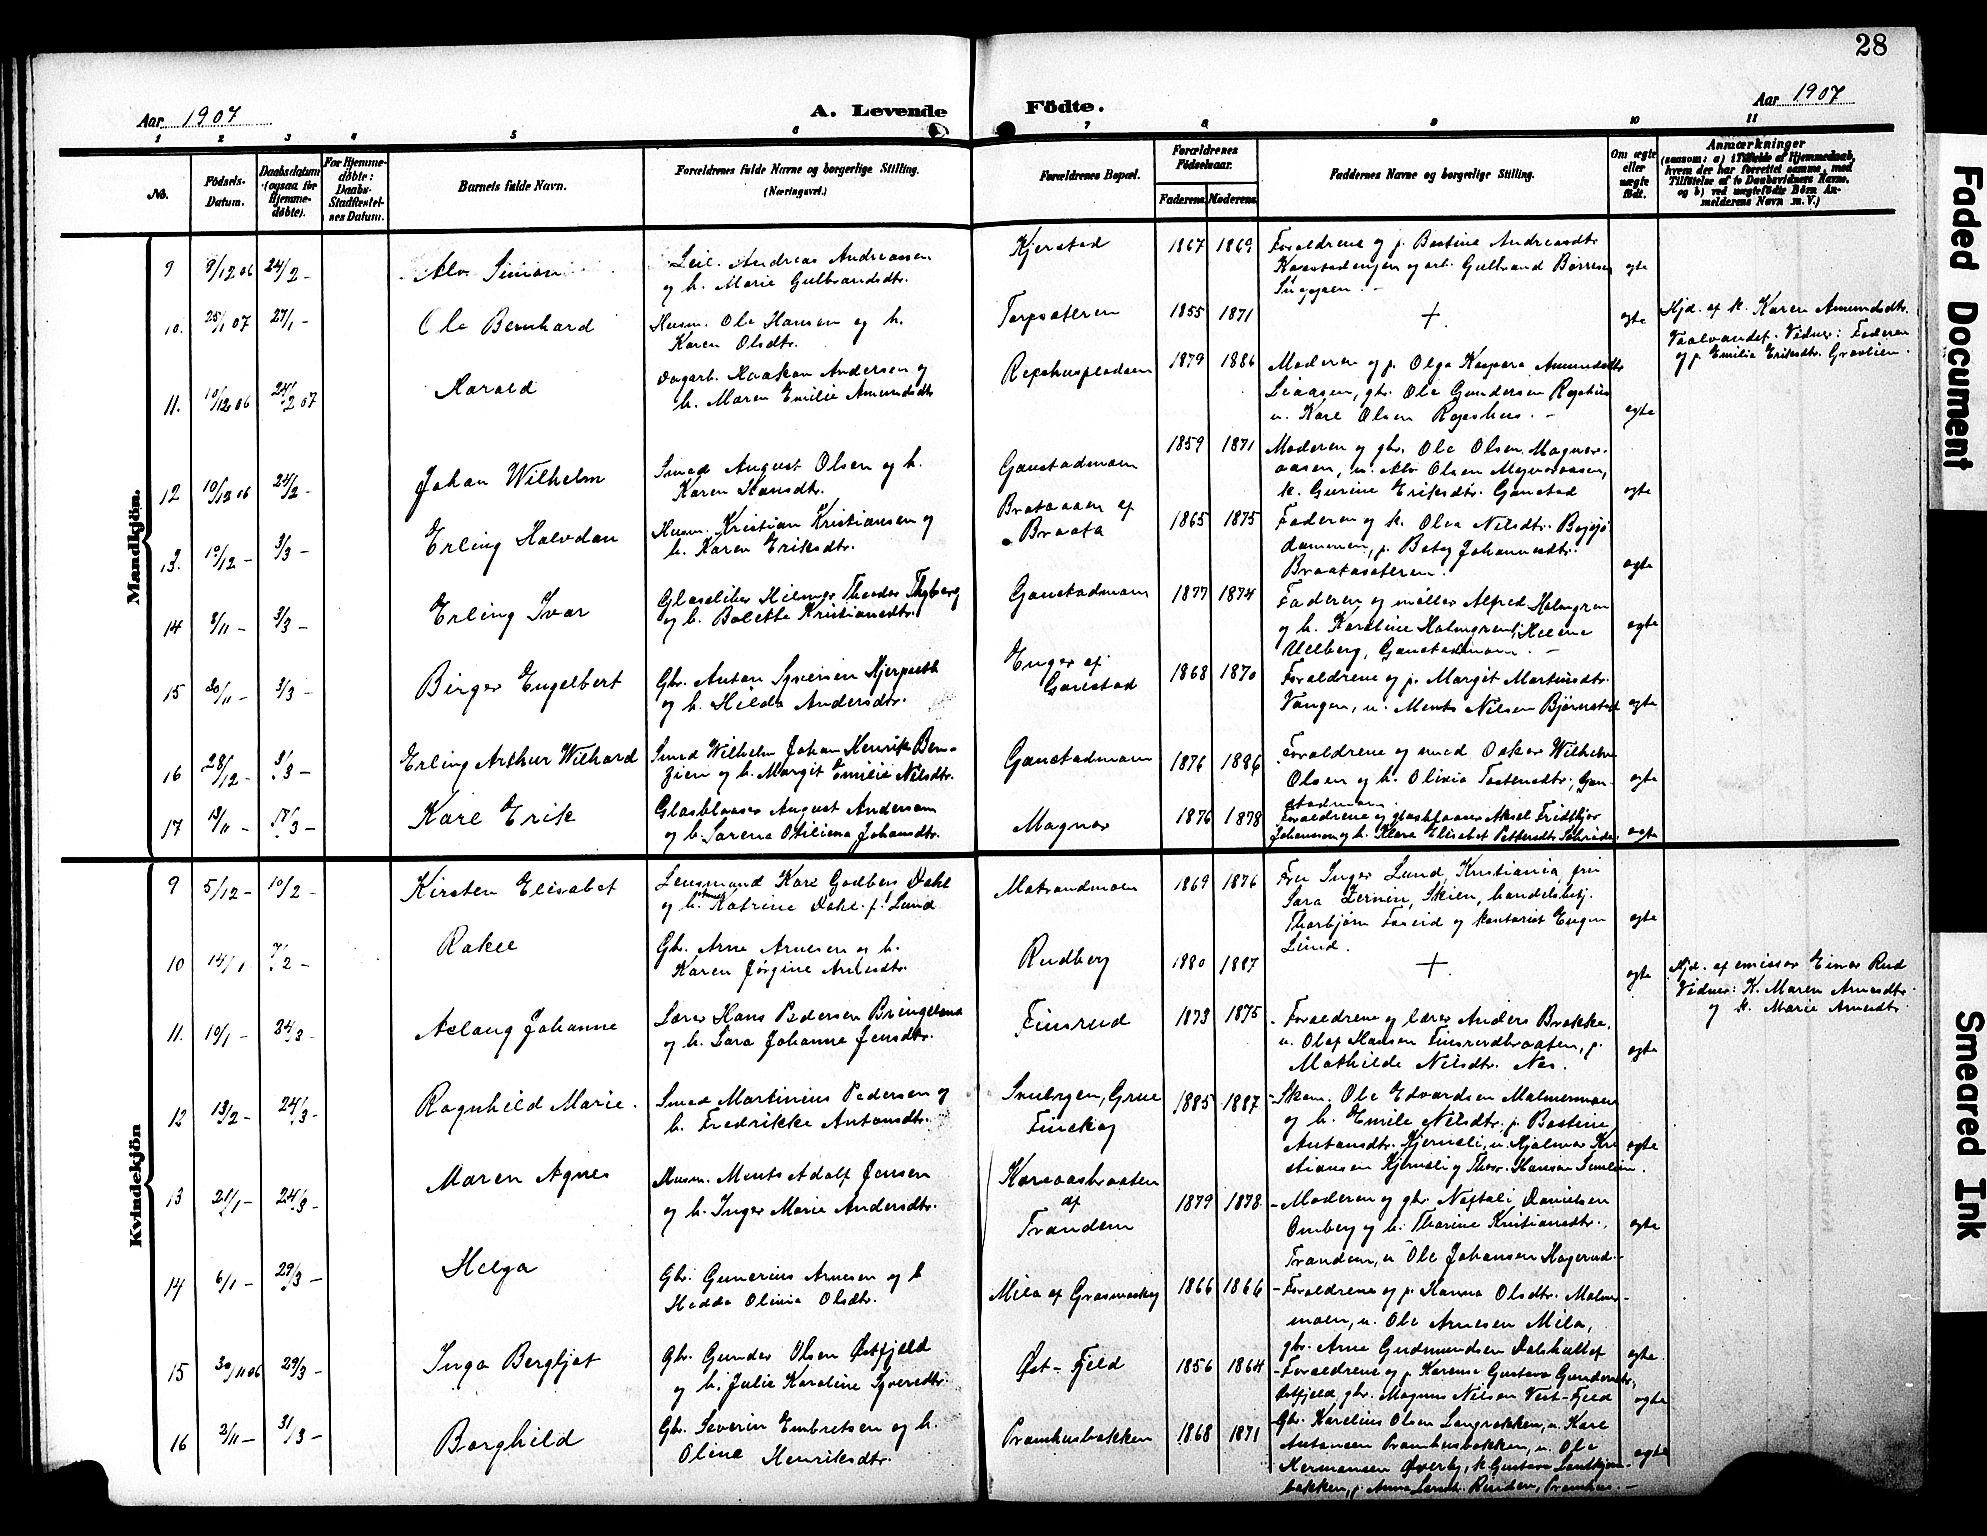 28
Aar 1907
A. Levende
Födte.
Aar 1907
1 2 3 4 5 6 7 8 9 10 11
No.
Födsels-
Datum.
Daabsdatum
(ogsaa for
Hjemme-
döbte).
For Hjemme-
döbte:
Daabs-
Stadfæstel-
ses Datum.
Barnets fulde Navn.
Forældrenes fulde Navne og borgerlige Stilling.
(Næringsvei.)
Forældrenes Bopæl.
Forældrenes
Födselsaar.
Faderens. Moderens.
Faddernes Navne og borgerlige Stilling.
Om ægte
eller
uægte
födt.
Anmærkninger
(saasom: a) i Tilfælde af Hjemmedaab,
hvem der har forrettet samme, med
Tilföielse af to Daabsvidners Navne,
og b) ved uægtefödte Börn An-
melderens Navn m. V.)
Mandkjön.
9 9/12 06 24/2 - Alv Simon
Leil. Andreas Andreassen
og h. Marie Gulbrandsdtr.
Kjerstad 1867 1869
Forældrene og p. Bastine Andreasdtr.
og arb. Gulbrand Børresen
ægte
10. 25/1 07 27/1 - Ole Bernhard
Husm. Ole Hansen og h.
Karen Olsdtr.
Torpsæteren 1855 1871 + ægte
Hjd. af k. Karen Amundsdtr.
Vaalvandet. Vidner: Faderen
og p. Emilie Eriksdtr. Graalien.
11. 10/12 06 24/2 07 Harald
Dagarb. Haakon Andersen og
h. Maren Emilie Amundsdtr.
1879 1886
Moderen og p. Olga Kaspara Amundsdtr.
Liaasen, gbr. Ole Gundersen
u. Kare Olsen
ægte
12 10/12 06 24/2 - Johan Wilhelm
Smed August Olsen og h.
Karen Hansdtr.
Gaustadmoen 1859 1871
Moderen og gbr. Ole Olsen Magnor-
aasen, u. Alv Olsen
k. Gurine Eriksdtr. Gaustad
ægte
13. 10/12 - 3/3 - Erling Halvdan
Husm. Kristian Kristiansen og
h. Karen Eriksdtr.
Brataaen af
Braata 1865 1875
Faderen og k. Olea Nilsdtr.
dammen, p. Betzy Johannesdtr.
Braatasæteren.
ægte
14 8/11 - 3/3 - Erling Ivar
Glassliber Hilmar Theodor Thyberg
og h. Bolette Kristiansdtr.
Gaustadmoen 1877 1874
Faderen og møller Alfred Holmgren
og h. Karoline Holmgren, Helene
Ulberg, Gaustadmoen.
ægte
15 20/11 - 3/3 - Birger Engelbert
Gbr. Anton Syversen Hjerpseth
og h. Hilda Andersdtr.
Enger af
Gaustad 1868 1870
Forældrene og p. Margit Martinsdtr.
Vangen, u. Ments Nilsen Bjørnstad
ægte
16 28/12 - 3/3 - Erling Arthur Wilhard
Smed Wilhelm Johan Henrik Ben-
zien og h. Margit Emilie Nilsdtr.
Gaustadmoen 1876 1886
Forældrene og smed Oskar Wilhelm
Olsen og h. Olivia Tostensdtr., Gau-
stadmoen.
ægte
17 13/11 - 17/3 - Kare Erik
Glasblaaser August Anderson
og h. Sørena Otiliena Johansdtr.
Magnor 1876 1878
Forældrene og glasblaaser Aksel Fridtjov
Johannson og h. Klara Elisabet Pettersdtr.
ægte
Kvindekjön
9 5/12 - 10/2 - Kirsten Elisabet
Lensmand Kare Godberg Dahl
og h. Katrine Dahl f. Lund
Matrandmoen 1869 1876
Fru Inger Lund, Kristiania, fru
Sara Zernin, Skien, handelsbetj.
Thorbjørn Foseid og kontorist Eugen
Lund.
ægte
10 14/1 7/2 - Rakel
Gbr. Arne Arnesen og h.
Karen Jørgine Arnesdtr.
Rudberg 1880 1887 + ægte
Hjd. af emissær Einar Rud
Vidner: K. Maren Arnesdtr.
og k. Marie Arnesdtr.
11. 10/1 - 24/3 - Aslaug Johanne
Lærer Hans Pedersen Bringebma
og h. Sara Johanne Jensdtr.
Finsrud 1873 1875
- Forældrene og lærer Anders Brakke,
u. Olaf Hansen Finsrudbraaten, p.
Mathilde Nilsdtr. Næs.
ægte
12 13/2 - 24/3 - Ragnhild Marie.
Smed Martinius Pedersen og
h. Fredrikke Antonsdtr.
Grue
Finskog 1885 1887
- Skom. Ole Edvardsen Malmermoen
og h. Emilie Nilsdtr. p. Bastine
Antonsdtr. Kjernsli, u. Hjalmar Kri-
stiansen Kjernsli og Thor. Hansen
ægte
13 21/1 - 24/3 - Maren Agnes
Husm. Ments Adolf Jensen
og h. Inger Marie Andersdtr.
Kaasaasbraaten
af
Trandem 1879 1878
- Moderen og gbr. Naftali Danielsen
Omberg og h. Thorine Kristiansdtr.,
Trandem, u. Ole Johansen Hagerud.
ægte
14 6/1 - 29/3 - Helga
Gbr. Gunerius Arnesen og h
Hedda Olivia Olsdtr.
Mila af Grasmoskog 1866 1866
- Forældrene og p. Hanna Olsdtr. Malmer-
moen, u. Ole Arnesen Mila,
gbr. Arne Gudmundsen
ægte.
15 30/11 06 29/3 - Inga Bergljot
Gbr. Gunder Olsen Østfjeld
og h. Julie Karoline Syversdtr.
Øst-Fjeld 1856 1864
- Forældrene og p. Karense Gustava Gundersdtr.,
Østfjeld, gbr. Magnus Nilsen Vest-Fjeld
ægte
16 2/11 - 31/3 - Borghild
Gbr. Severin Embretsen og h.
Oline Henriksdtr.
Pramhusbakken 1868 1871
Gbr. Karelius Olsen Langrækken, u. Kare
Antonsen Pramhusbakken, u. Ole
Hermansen Øverby, k. Gustava
bakken, p. Anna Larsdtr. Runden, Pramhus. -
ægte
Faded Document
Smeared Ink